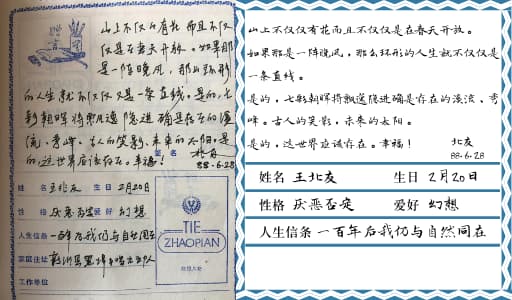 山上不仅仅有花而且不仅
仅是在春天开放。如果那
是一阵晚风，那么环形
的人生就不仅仅是一条直线。是的，七
彩朝晖将飘逸隐进确是存在的溪
流、秀峰。古人的笑影、未来的太阳。是
的，这世界应该存在。幸福！
签名 北友
88-6-28
姓名 王北友 生日 2月20日
性格 厌恶否定 爱好 幻想
人生信条 一百年后我仍与自然同在
家庭住址
工作单位
TIE
ZHAOPIAN
山上不仅仅有花而且不仅仅是在春天开放。
如果那是一阵晚风，那么环形的人生就不仅仅是
一条直线。
是的，七彩朝晖将飘逸隐进确是存在的溪流、秀
峰。古人的笑影，未来的太阳。
是的，这世界应该存在。幸福！ 北友
88-6-28
姓名 王北友 生日 2月20日
性格 厌恶否定 爱好 幻想
人生信条 一百年后我仍与自然同在